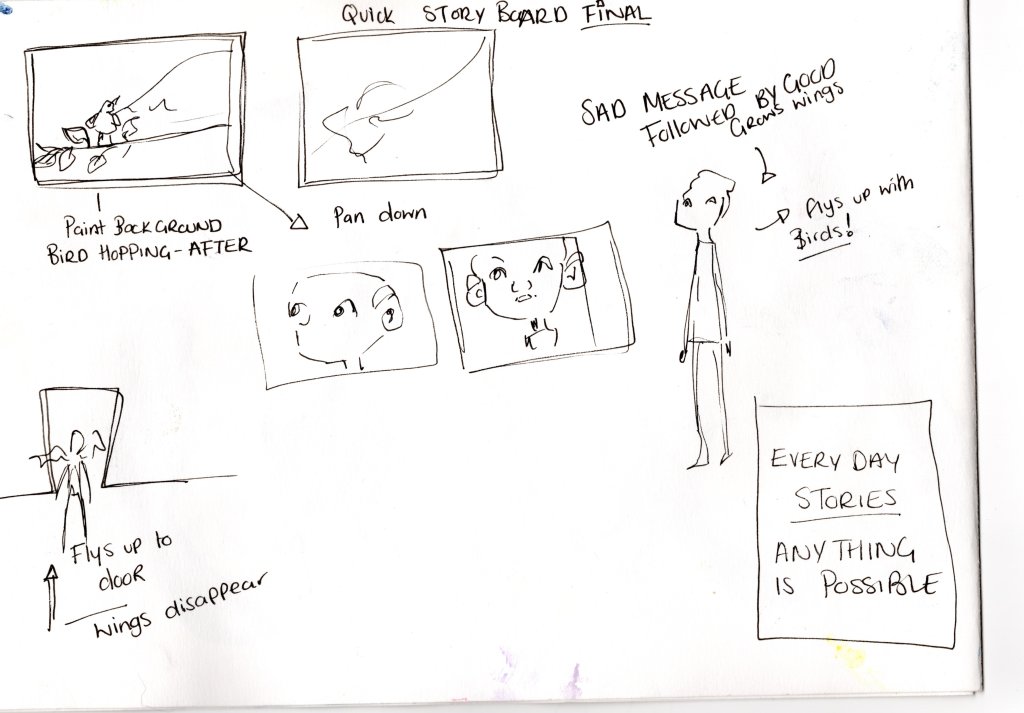 Quick STORY BOARD FINAL
SAD MESSAGE
Followed BY GOOD
Grows wings
Flys up with
Birds!
Paint BACKGROUND
BIRD HOPPING - AFTER
Pan down
Flys up to
door
wings disappear
EVERY DAY
STORIES
ANY THING
IS POSSIBLE